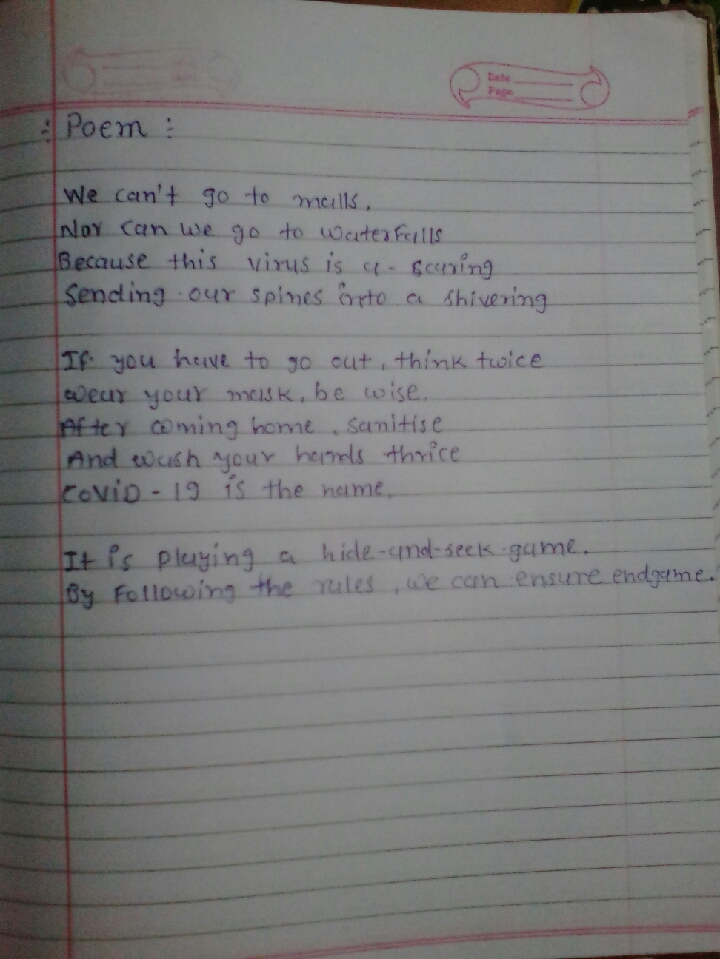 Date
Page
: Poem :
We can't go to malls,
Nor can we go to waterfalls
Because this virus is a-scaring
Sending our spines into a shivering
If you have to go out, think twice
Wear your mask, be wise.
After coming home, sanitise
And wash your hands thrice
COVID-19 is the name,
It is playing a hide-and-seek-game.
By Following the rules, we can ensure endgame.